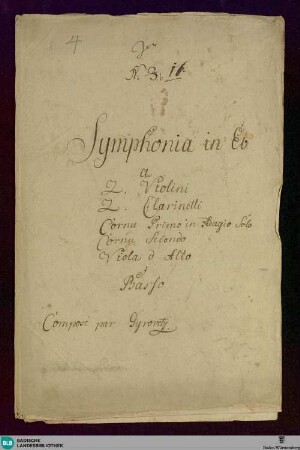 4
N. 3. 16.
Symphonia in Eb
a
2. Violini
2. Clarinetti
Cornu Primo in Adagio Solo
Cornu Secondo
Viola d Alto
Basso
Composé par Gyrovetz
BLB
BADISCHE
LANDESBIBLIOTHEK
Baden-Württemberg